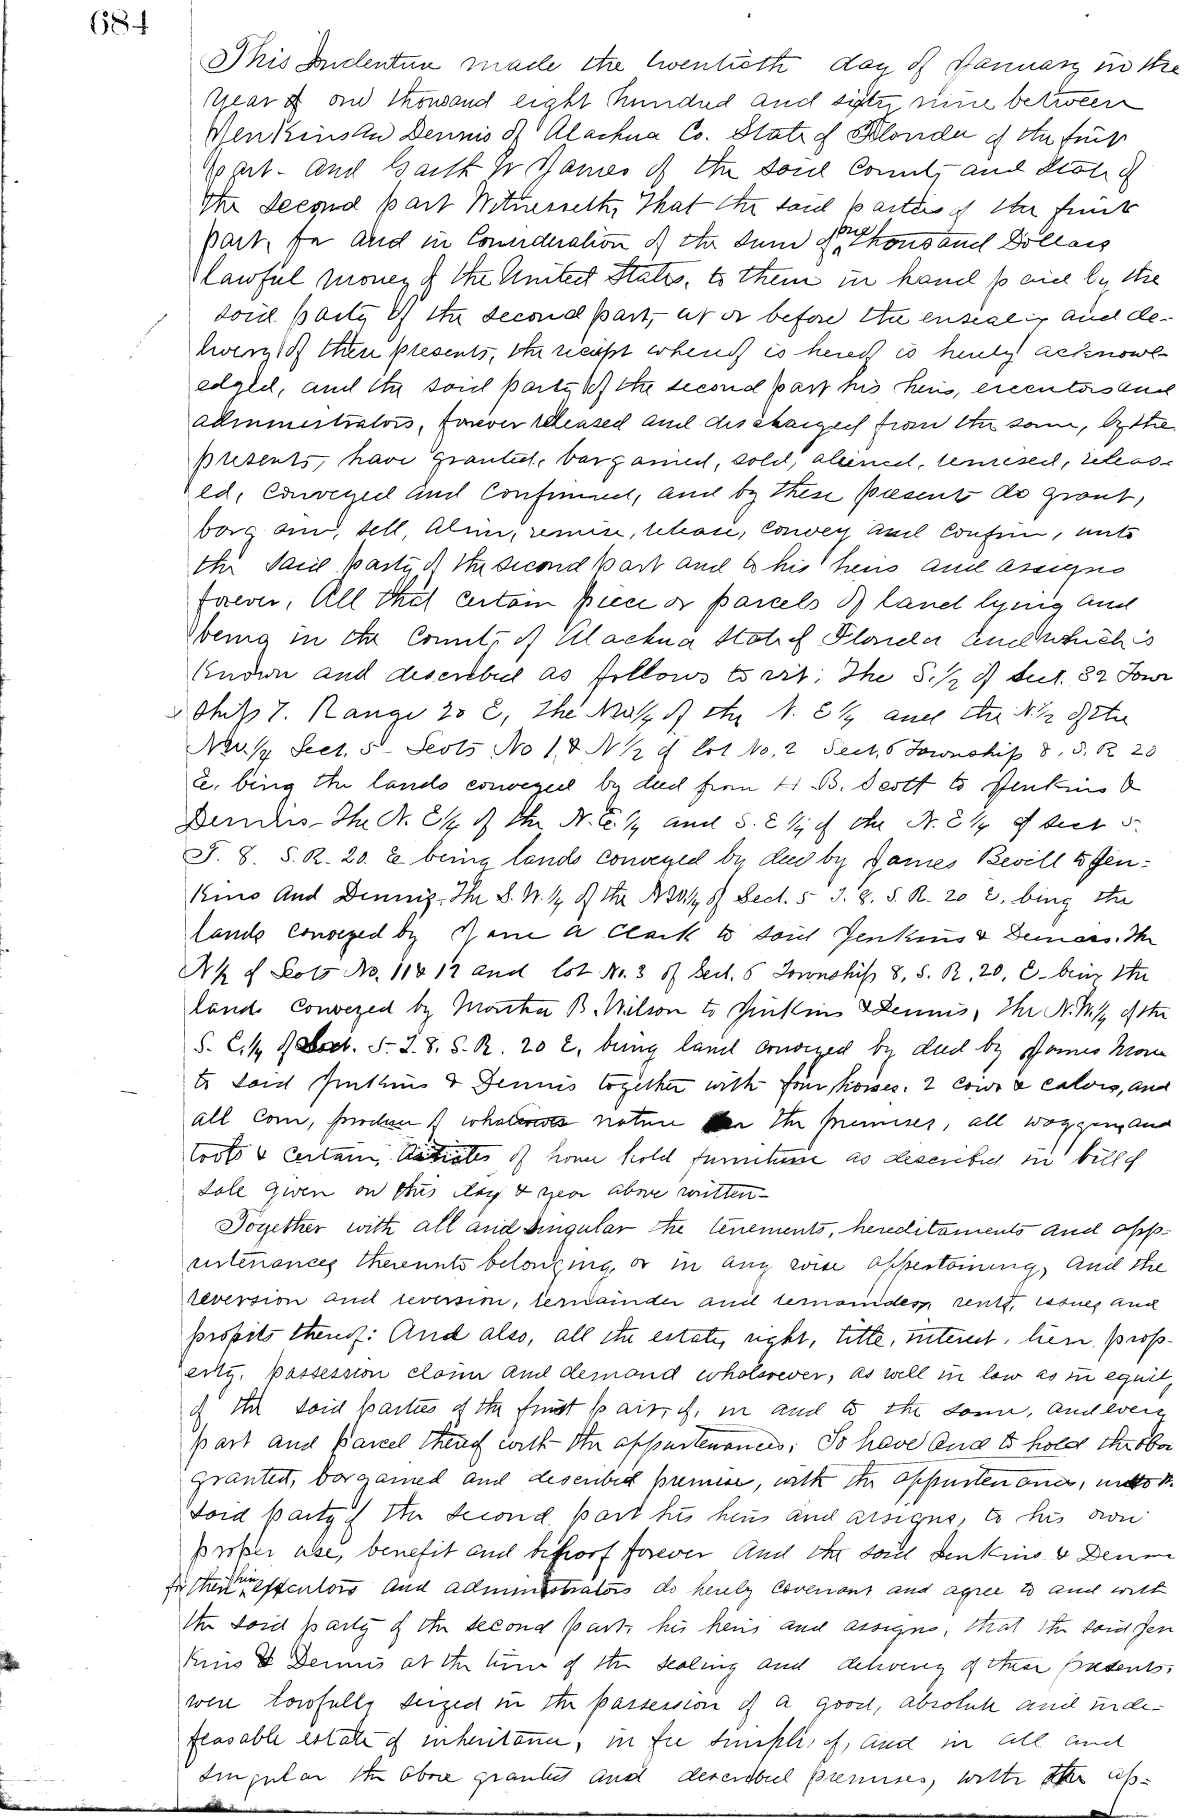 684
This Indenture made the twentieth day of January in the
Year of one thousand eight hundred and sixty nine between
Jenkins and Dennis of Alachua Co. State of Florida of the first
part - and Garth W James of the said County and State of
the second part Witnesseth, That the said parties of the first
part, for and in Consideration of the sum of one thousand Dollars
lawful money of the United States, to them in hand paid by the
said party of the second part, at or before the ensealing and de-
livery of these presents, the receipt whereof is hereof is hereby acknowl-
edged, and the said party of the second part his heirs, executors and
administrators, forever released and discharged from the same, by the
presents, have granted, bargained, sold, aliened, remised, releas-
ed, Conveyed and Confirmed, and by these presents do grant,
bargain, sell, alien, remise, release, convey and confirm, unto
the said party of the second part and to his heirs and assigns
forever, All that certain piece or parcels of land lying and
being in the County of Alachua State of Florida and which is
Known and described as follows to wit; The S. 1/2 of Sect. 32 Town
ship 7. Range 20 E, The NW 1/4 of the N. E 1/4 and the N 1/2 of the
NW. 1/4 Sect. 5 - Lots No 1, & N 1/2 of lot No. 2 Sect. 6 Township 8. S. R 20
E. being the lands conveyed by deed from H. B. Scott to Jenkins &
Dennis - The N. E 1/4 of the N. E. 1/4 and S. E 1/4 of the N. E 1/4 of sect 5.
T. 8. S. R. 20. E being lands conveyed by deed by James Bevill to Jen-
kins and Dennis - The S. W. 1/4 of the NW 1/4 of Sect. 5 T. 8. S. R. 20 E. being the
lands conveyed by Jane A Clark to said Jenkins & Dennis. The
N 1/2 of Lots No. 11 & 12 and lot No. 3 of Sect. 6 Township 8, S. R. 20, E - being the
lands conveyed by Martha B. Wilson to Jinkins & Dennis, The N. W. 1/4 of the
S. E. 1/4 of Sect. 5 - T. 8. S. R. 20 E, being land conveyed by deed by James
to said Jenkins & Dennis together with four horses. 2 cows & calves, and
all corn, produce of whatever nature the premises, all waggons and
tools & certain articles of house hold furniture as described in bill of
sale given on this day & year above written -
Together with all and singular the tenements, hereditaments and app-
urtenances thereunto belonging, or in any wise appertaining, and the
reversion and reversion, remainder and remainders, rents, issues and
profits thereof: And also, all the estate, right, title, interest, lien, prop-
erty, possession claim and demand whatsoever, as well in law as in equity,
of the said parties of the first part, of, in and to the same, and every
part and parcel thereof with the appurtenances; To have and to hold the abov
granted, bargained and described premise, with the appurtenances, unto th.
said party of the second part his heirs and assigns, to his own
proper use, benefit and behoof forever And the said Jenkins & Dennis
for their heirs executors and administrators do hereby covenant and agree to and with
the said party of the second part, his heirs and assigns, that the said Jen
kins & Dennis at the time of the sealing and delivery of these presents.
were lawfully seized in the possession of a good, absolute and inde-
feasable estate of inheritance, in fee simple, of, and in all and
singular the above granted and described premises, with the ap-